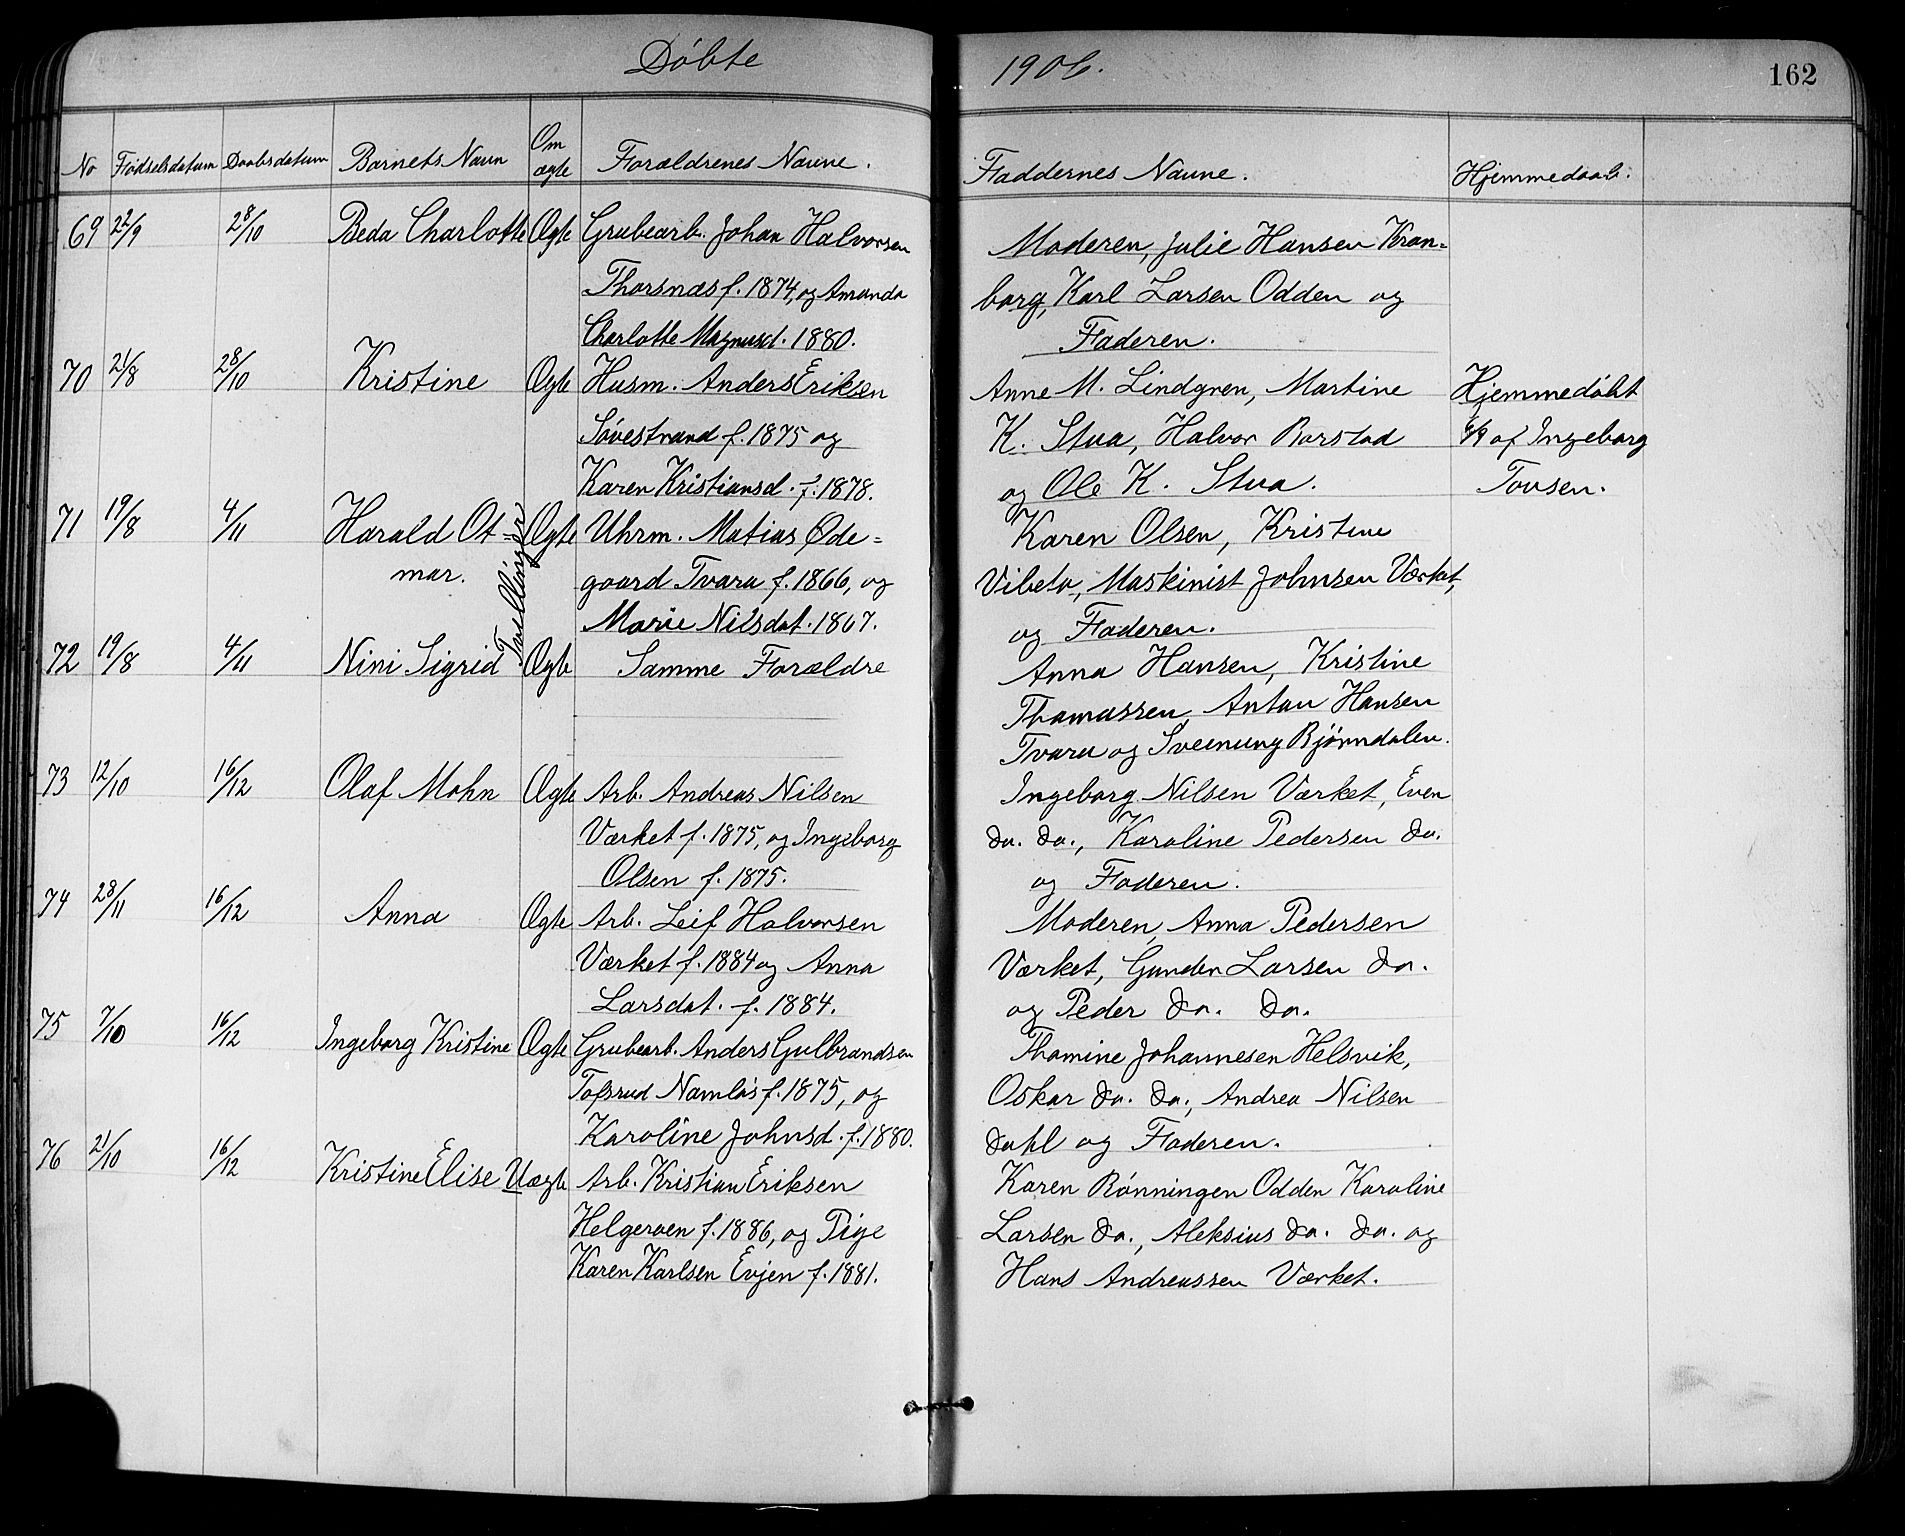 Döbte 1906. 162
No Födselsdatum Daabsdatum Barnets Navn Om ægte Forældrenes Navne. Faddernes Navne. Hjemmedaab.
69 22/9 28/10 Beda Charlotte Ægte Grubearb. Johan Halvorsen
Thorsnæs f. 1874, og Amanda
Charlotte Magnusd. 1880.
Moderen, Julie Hansen Kron=
borg, Karl Larsen Odden og
Faderen.
70 21/8 28/10 Kristine Ægte Husm. Anders Eriksen
Søvestrand f. 1875 og
Karen Kristiansd. f. 1878.
Anne M. Lindgren, Martine
K. Stua, Halvor Barstad
og Ole K. Stua.
Hjemmedöbt
6/9 af Ingeborg
Tovsen.
71 19/8 4/11 Harald Ot=
mar.
Tvillinger
Ægte Uhrm. Matias Øde=
gaard Tvara f. 1866, og
Marie Nilsdat. 1867.
Karen Olsen, Kristine
Vibeto, Maskinist Johnsen Værket,
og Faderen.
72 19/8 4/11 Nini Sigrid Ægte Samme Forældre
Anna Hansen, Kristine
Thomassen, Anton Hansen
Tvara og Sveinung Bjørndalen.
73 12/10 16/12 Olaf Mohn Ægte Arb. Andreas Nilsen
Værket f. 1875, og Ingeborg
Olsen f. 1875.
Ingeborg Nilsen Værket, Even
do. do., Karoline Pedersen do.
og Faderen.
74 28/11 16/12 Anna Ægte Arb. Leif Halvorsen
Værket f. 1884 og Anna
Larsdat. f. 1884.
Moderen, Anna Pedersen
Værket, Gunder Larsen do.
og Peder do. do.
75 7/10 16/12 Ingeborg Kristine Ægte Grubearb. Anders Gulbrandsen
Tofsrud Namløs f. 1875, og
Karoline Johnsd. f. 1880.
Thomine Johannesen Helsvik,
Oskar do. do., Andrea Nilsen
Dahl og Faderen.
76 21/10 16/12 Kristine Elise Uægte Arb. Kristian Eriksen
Helgeroen f. 1886, og Pige
Karen Karlsen Evjen f. 1881.
Karen Rönningen Odden Karoline
Larsen do., Aleksius do. do. og
Hans Andreassen Værket.